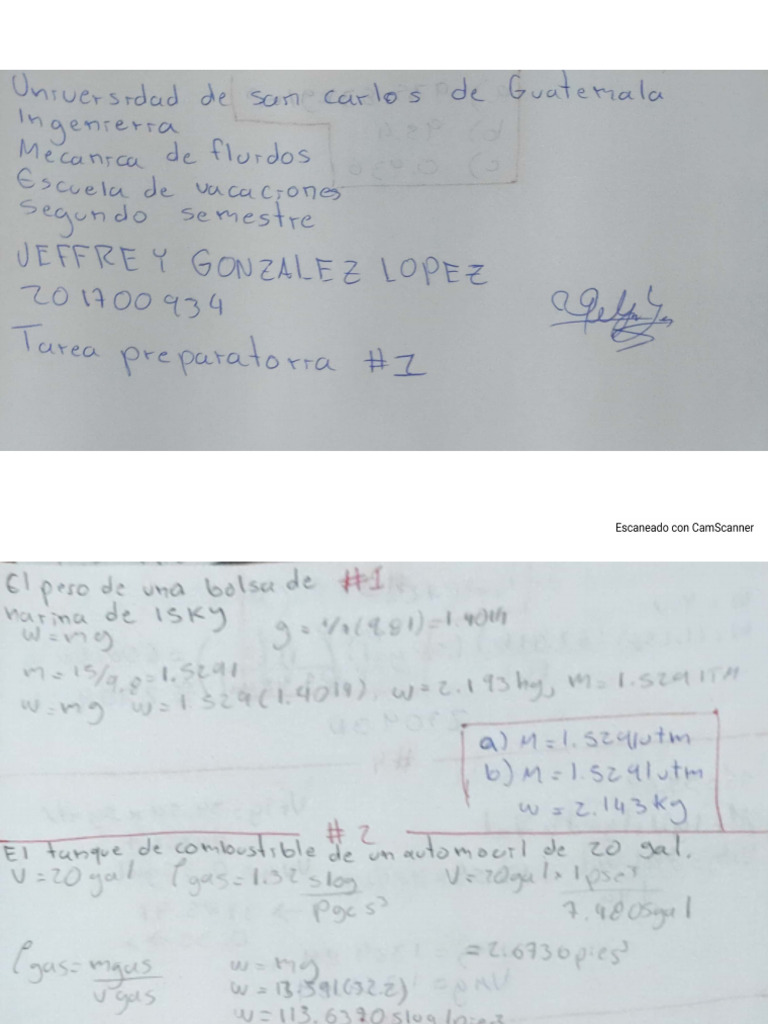 Universidad de san carlos de Guatemala
Ingenieria
Mecanica de fluidos
Escuela de vacaciones
segundo semestre
JEFFREY GONZALEZ LOPEZ
201700934
Tarea preparatoria #1
Escaneado con CamScanner
El peso de una bolsa de #1
harina de 15Kg
w=mg g=1/7(9.81)=1.4014
m=15/9.8=1.5291
w=mg w=1.529(1.4014), w=2.143kg,
a) M=1.5291utm
b) M=1.5291utm
w=2.143kg
#2
El tanque de combustible de un automovil de 20 gal.
V=20gal ρgas=1.32 slog/pges³ V=20gal × 1pie³/7.4805gal
=2.6730pies³
ρgas=mgas/vgas w=mg